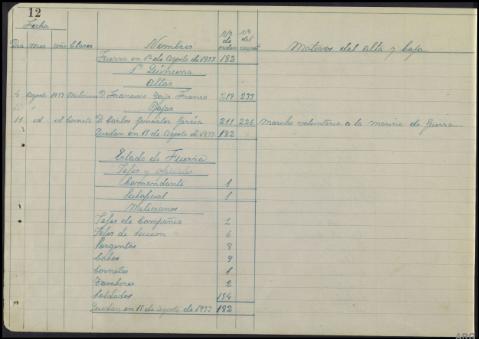 12
Fecha
Dia mes año Clases Nombres Nº de orden Nº del carnet Motivos del alta y baja
Fuerza en 1º de Agosto de 1937 182
1ª Quincena
Altas
Agosto 1937 D. Francisco Franco 217 233
Bajas
11 id id Corneta D. Carlos González García 211 226 Marcha voluntario a la marina de guerra
Quedan en 15 de Agosto de 1937 182
Estado de Fuerza
Jefes y oficiales
Comandante 1
1
Milicianos
Jefes de Compañia 2
Jefes de Sección 6
Sargentos 8
Cabos 9
Cornetas 1
2
Soldados
Quedan en 15 de Agosto de 1937 182